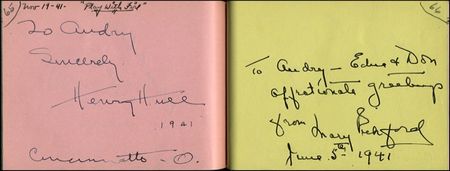 65
Nov 19-41. "Play With Fire"
To Audry
Sincerely
Henry Hull
1941
Cincinnatti - O.
66
To Audry - Edna & Don
affectionate greetings
from Mary Pickford
June 5th 1941